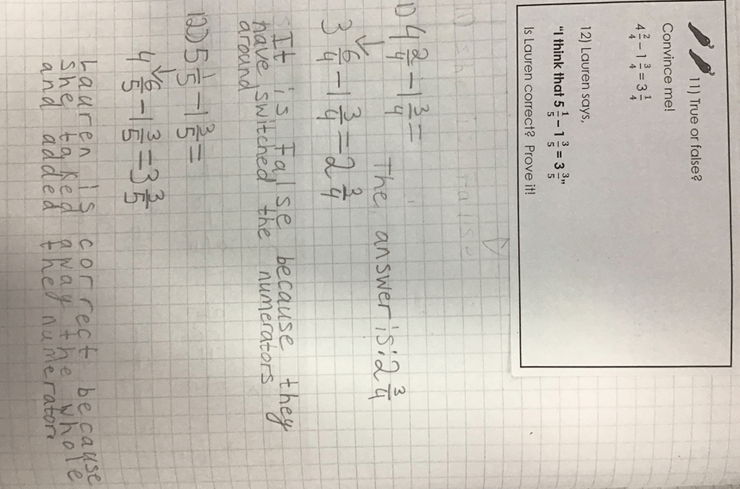 11) True or false?
Convince me!
4 2/4 - 1 3/4 = 3 1/4
12) Lauren says,
"I think that 5 1/5 - 1 3/5 = 3 3/5"
Is Lauren correct? Prove it!
1) 4 2/4 - 1 3/4 =
The answer is: 2 3/4
3 6/4 - 1 3/4 = 2 3/4
It is False because they
have switched the numerators
around
12) 5 1/5 - 1 3/5 =
4 6/5 - 1 3/5 = 3 3/5
Lauren is correct because
she taked away the whole
and added the numerator